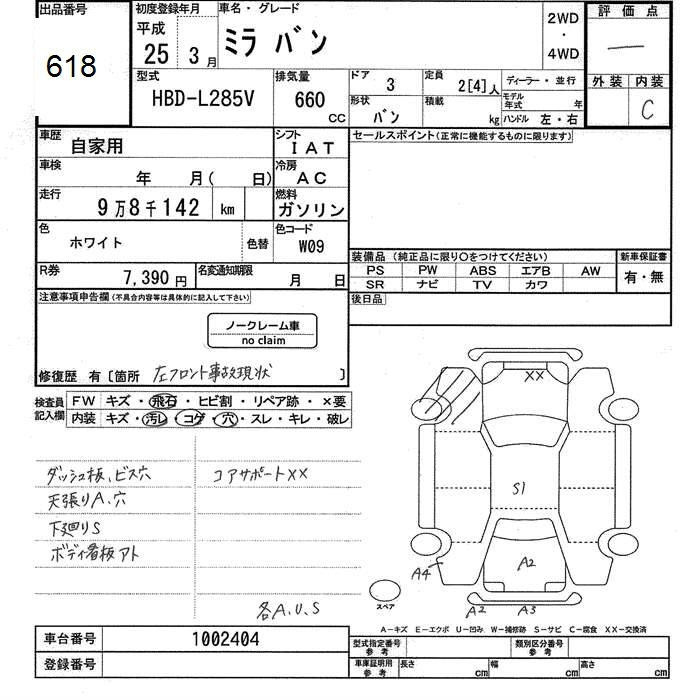 出品番号 初度登録年月 車名・グレード 2WD・4WD 評価点
618 平成 25 3月 ミラ バン —
型式 排気量 ドア 定員 ディーラー・並行 外装 内装
HBD-L285V 660 CC 3 2[4]人 C
形状 積載 モデル年式 年
バン kg ハンドル 左・右
車歴 自家用 シフト IAT セールスポイント(正常に機能するものに限ります)
車検 年 月( 日) 冷房 AC
走行 9万8千142 km 燃料 ガソリン
色 ホワイト 色替 色コード W09
装備品 (純正品に限り○をつけてください) 新車保証書
PS PW ABS エアB AW 有・無
SR ナビ TV カワ
R券 7,390円 名変通知期限 月 日
後日品
注意事項申告欄(不具合内容等は具体的に記入して下さい)
ノークレーム車
no claim
修復歴 有[箇所 左フロント事故現状 ]
検査員記入欄 FW キズ・飛石・ヒビ割・リペア跡・×要
内装 キズ・汚レ・コゲ・穴・スレ・キレ・破レ
XX
ダッシュ板、ビス穴 コアサポートXX
S1
天張りA、穴
下廻りS
ボディ看板アト
A2
A4
スペア
各A、U、S
A2 A3
A—キズ E—エクボ U—凹み W—補修跡 S—サビ C—腐食 XX—交換済
車台番号 1002404
型式指定番号 参考 類別区分番号 参考
登録番号
車庫証明用 参考 長さ cm 幅 cm 高さ cm